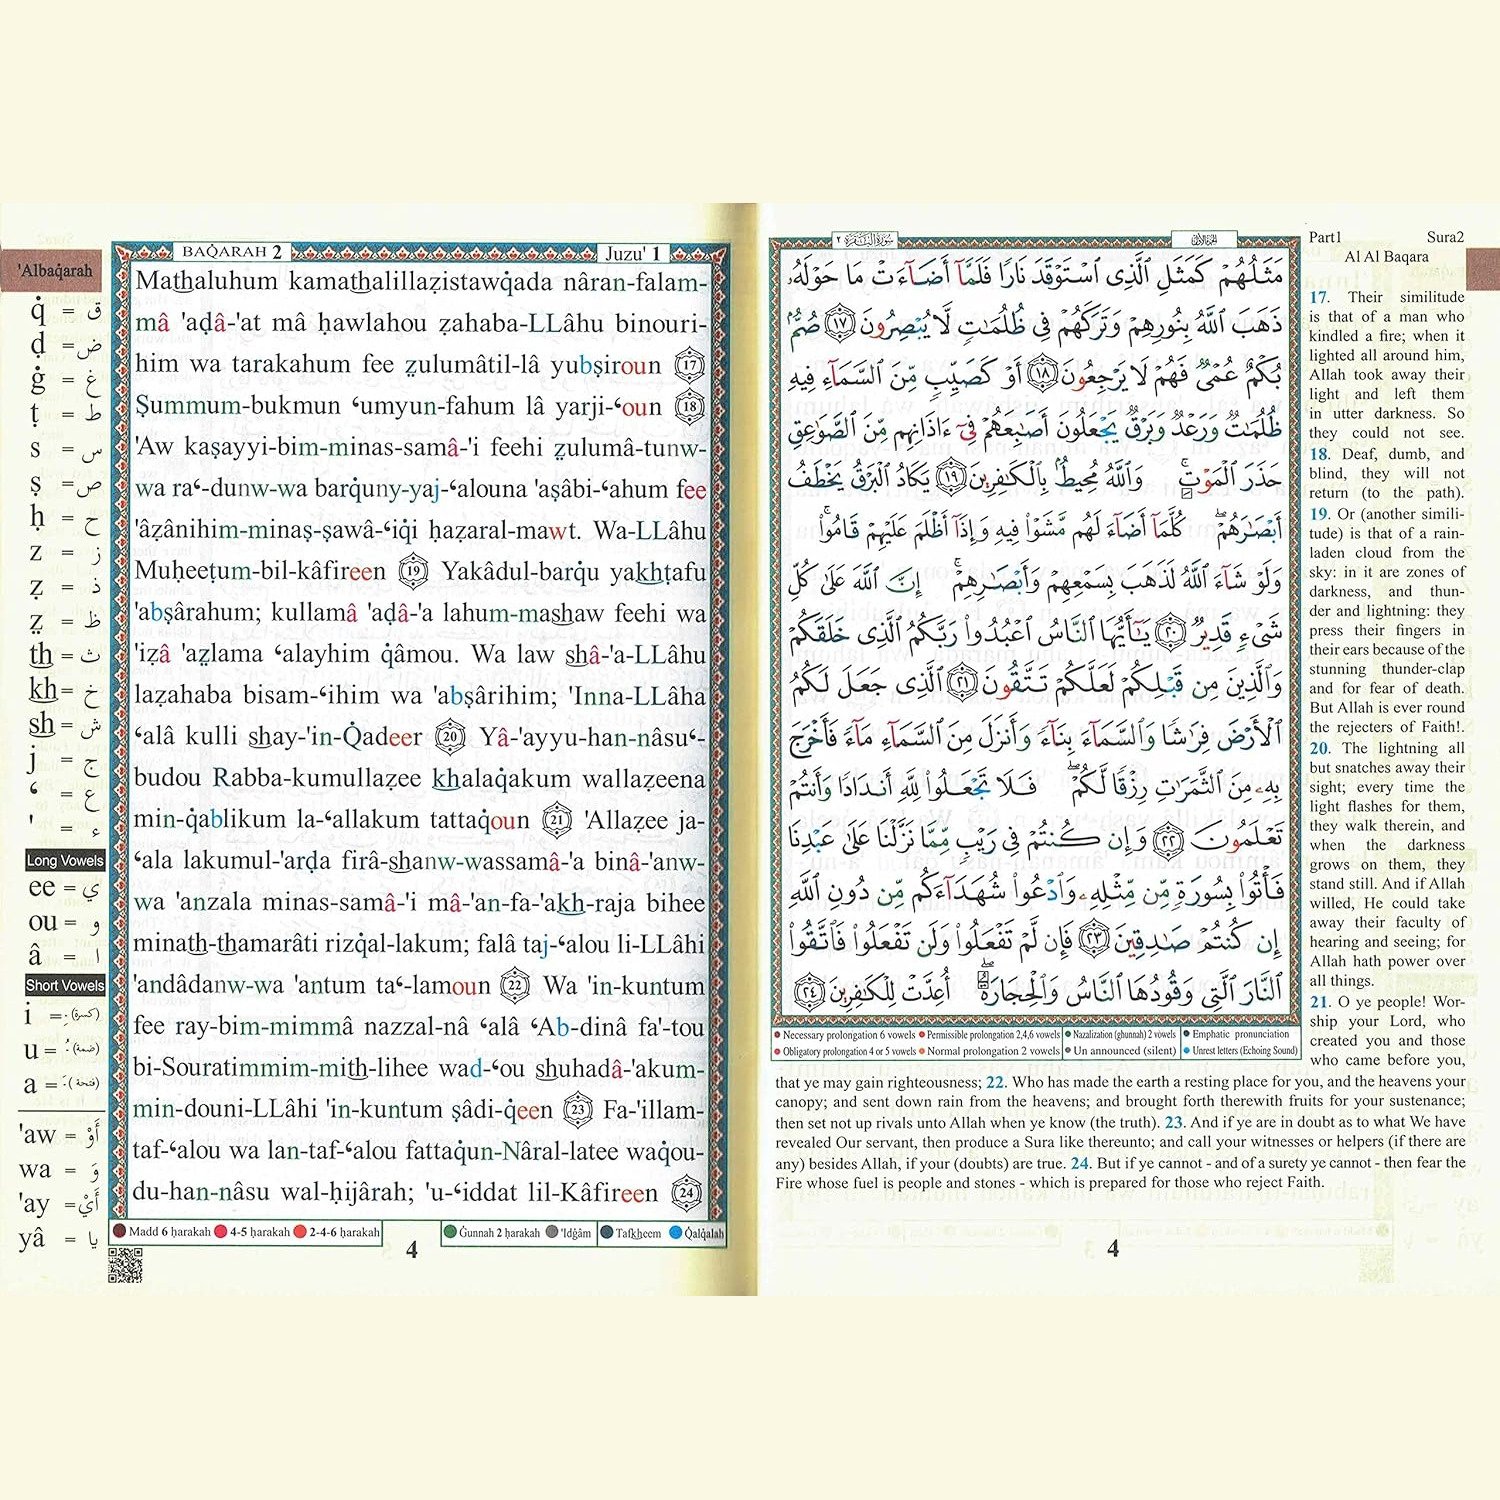 BAQ̇ARAH 2
Juzu' 1
'Albaq̇arah
q̇ = ق
ḍ = ض
ġ = غ
ṭ = ط
s = س
ṣ = ص
ḥ = ح
z = ز
ẓ = ذ
ẓ̤ = ظ
th = ث
kh = خ
sh = ش
j = ج
ʻ = ع
' = ء
Long Vowels
ee = ي
ou = و
â = ا
Short Vowels
i = (كسرة) ـِ
u = (ضمة) ـُ
a = (فتحة) ـَ
'aw = أَوْ
wa = وَ
'ay = أَيْ
yâ = يا
Mathaluhum kamathalillaẓistawq̇ada nâran-falam-
mâ 'aḍâ-'at mâ ḥawlahou ẓahaba-LLâhu binouri-
him wa tarakahum fee ẓ̤ulumâtil-lâ yubṣiroun 17
Ṣummum-bukmun ʻumyun-fahum lâ yarji-ʻoun 18
'Aw kaṣayyi-bim-minas-samâ-'i feehi ẓ̤ulumâ-tunw-
wa raʻ-dunw-wa barq̇uny-yaj-ʻalouna 'aṣâbi-ʻahum fee
'âẓânihim-minaṣ-ṣawâ-ʻiq̇i ḥaẓaral-mawt. Wa-LLâhu
Muḥeeṭum-bil-kâfireen 19 Yakâdul-barq̇u yakhṭafu
'abṣârahum; kullamâ 'aḍâ-'a lahum-mashaw feehi wa
'iẓâ 'aẓ̤lama ʻalayhim q̇âmou. Wa law shâ-'a-LLâhu
laẓahaba bisam-ʻihim wa 'abṣârihim; 'Inna-LLâha
ʻalâ kulli shay-'in-Q̇adeer 20 Yâ-'ayyu-han-nâsuʻ-
budou Rabba-kumullaẓee khalaq̇akum wallaẓeena
min-q̇ablikum la-ʻallakum tattaq̇oun 21 'Allaẓee ja-
ʻala lakumul-'arḍa firâ-shanw-wassamâ-'a binâ-'anw-
wa 'anzala minas-samâ-'i mâ-'an-fa-'akh-raja bihee
minath-thamarâti rizq̇al-lakum; falâ taj-ʻalou li-LLâhi
'andâdanw-wa 'antum taʻ-lamoun 22 Wa 'in-kuntum
fee ray-bim-mimmâ nazzal-nâ ʻalâ ʻAb-dinâ fa'-tou
bi-Souratimmim-mith-lihee wad-ʻou shuhadâ-'akum-
min-douni-LLâhi 'in-kuntum ṣâdi-q̇een 23 Fa-'illam-
taf-ʻalou wa lan-taf-ʻalou fattaq̇un-Nâral-latee waq̇ou-
du-han-nâsu wal-ḥijârah; 'u-ʻiddat lil-Kâfireen 24
Madd 6 ḥarakah 4-5 ḥarakah 2-4-6 ḥarakah
Ġunnah 2 ḥarakah 'Idġâm Tafkheem Q̇alq̇alah
4
سُورَةُ البَقَرَةِ ٢
الجزء الأول
مَثَلُهُمْ كَمَثَلِ ٱلَّذِى ٱسْتَوْقَدَ نَارًا فَلَمَّآ أَضَآءَتْ مَا حَوْلَهُۥ
ذَهَبَ ٱللَّهُ بِنُورِهِمْ وَتَرَكَهُمْ فِى ظُلُمَٰتٍ لَّا يُبْصِرُونَ ١٧ صُمٌّۢ
بُكْمٌ عُمْىٌ فَهُمْ لَا يَرْجِعُونَ ١٨ أَوْ كَصَيِّبٍ مِّنَ ٱلسَّمَآءِ فِيهِ
ظُلُمَٰتٌ وَرَعْدٌ وَبَرْقٌ يَجْعَلُونَ أَصَٰبِعَهُمْ فِىٓ ءَاذَانِهِم مِّنَ ٱلصَّوَٰعِقِ
حَذَرَ ٱلْمَوْتِ ۚ وَٱللَّهُ مُحِيطٌۢ بِٱلْكَٰفِرِينَ ١٩ يَكَادُ ٱلْبَرْقُ يَخْطَفُ
أَبْصَٰرَهُمْ ۖ كُلَّمَآ أَضَآءَ لَهُم مَّشَوْا۟ فِيهِ وَإِذَآ أَظْلَمَ عَلَيْهِمْ قَامُوا۟ ۚ
وَلَوْ شَآءَ ٱللَّهُ لَذَهَبَ بِسَمْعِهِمْ وَأَبْصَٰرِهِمْ ۚ إِنَّ ٱللَّهَ عَلَىٰ كُلِّ
شَىْءٍ قَدِيرٌ ٢٠ يَٰٓأَيُّهَا ٱلنَّاسُ ٱعْبُدُوا۟ رَبَّكُمُ ٱلَّذِى خَلَقَكُمْ
وَٱلَّذِينَ مِن قَبْلِكُمْ لَعَلَّكُمْ تَتَّقُونَ ٢١ ٱلَّذِى جَعَلَ لَكُمُ
ٱلْأَرْضَ فِرَٰشًا وَٱلسَّمَآءَ بِنَآءً وَأَنزَلَ مِنَ ٱلسَّمَآءِ مَآءً فَأَخْرَجَ
بِهِۦ مِنَ ٱلثَّمَرَٰتِ رِزْقًا لَّكُمْ ۖ فَلَا تَجْعَلُوا۟ لِلَّهِ أَندَادًا وَأَنتُمْ
تَعْلَمُونَ ٢٢ وَإِن كُنتُمْ فِى رَيْبٍ مِّمَّا نَزَّلْنَا عَلَىٰ عَبْدِنَا
فَأْتُوا۟ بِسُورَةٍ مِّن مِّثْلِهِۦ وَٱدْعُوا۟ شُهَدَآءَكُم مِّن دُونِ ٱللَّهِ
إِن كُنتُمْ صَٰدِقِينَ ٢٣ فَإِن لَّمْ تَفْعَلُوا۟ وَلَن تَفْعَلُوا۟ فَٱتَّقُوا۟
ٱلنَّارَ ٱلَّتِى وَقُودُهَا ٱلنَّاسُ وَٱلْحِجَارَةُ ۖ أُعِدَّتْ لِلْكَٰفِرِينَ ٢٤
Necessary prolongation 6 vowels Permissible prolongation 2,4,6 vowels Nazalization (ghunnah) 2 vowels Emphatic pronunciation
Obligatory prolongation 4 or 5 vowels Normal prolongation 2 vowels Un announced (silent) Unrest letters (Echoing Sound)
Part1 Sura2
Al Al Baqara
17. Their similitude
is that of a man who
kindled a fire; when it
lighted all around him,
Allah took away their
light and left them
in utter darkness. So
they could not see.
18. Deaf, dumb, and
blind, they will not
return (to the path).
19. Or (another simili-
tude) is that of a rain-
laden cloud from the
sky: in it are zones of
darkness, and thun-
der and lightning: they
press their fingers in
their ears because of the
stunning thunder-clap
and for fear of death.
But Allah is ever round
the rejecters of Faith!.
20. The lightning all
but snatches away their
sight; every time the
light flashes for them,
they walk therein, and
when the darkness
grows on them, they
stand still. And if Allah
willed, He could take
away their faculty of
hearing and seeing; for
Allah hath power over
all things.
21. O ye people! Wor-
ship your Lord, who
created you and those
who came before you,
that ye may gain righteousness; 22. Who has made the earth a resting place for you, and the heavens your
canopy; and sent down rain from the heavens; and brought forth therewith fruits for your sustenance;
then set not up rivals unto Allah when ye know (the truth). 23. And if ye are in doubt as to what We have
revealed Our servant, then produce a Sura like thereunto; and call your witnesses or helpers (if there are
any) besides Allah, if your (doubts) are true. 24. But if ye cannot - and of a surety ye cannot - then fear the
Fire whose fuel is people and stones - which is prepared for those who reject Faith.
4